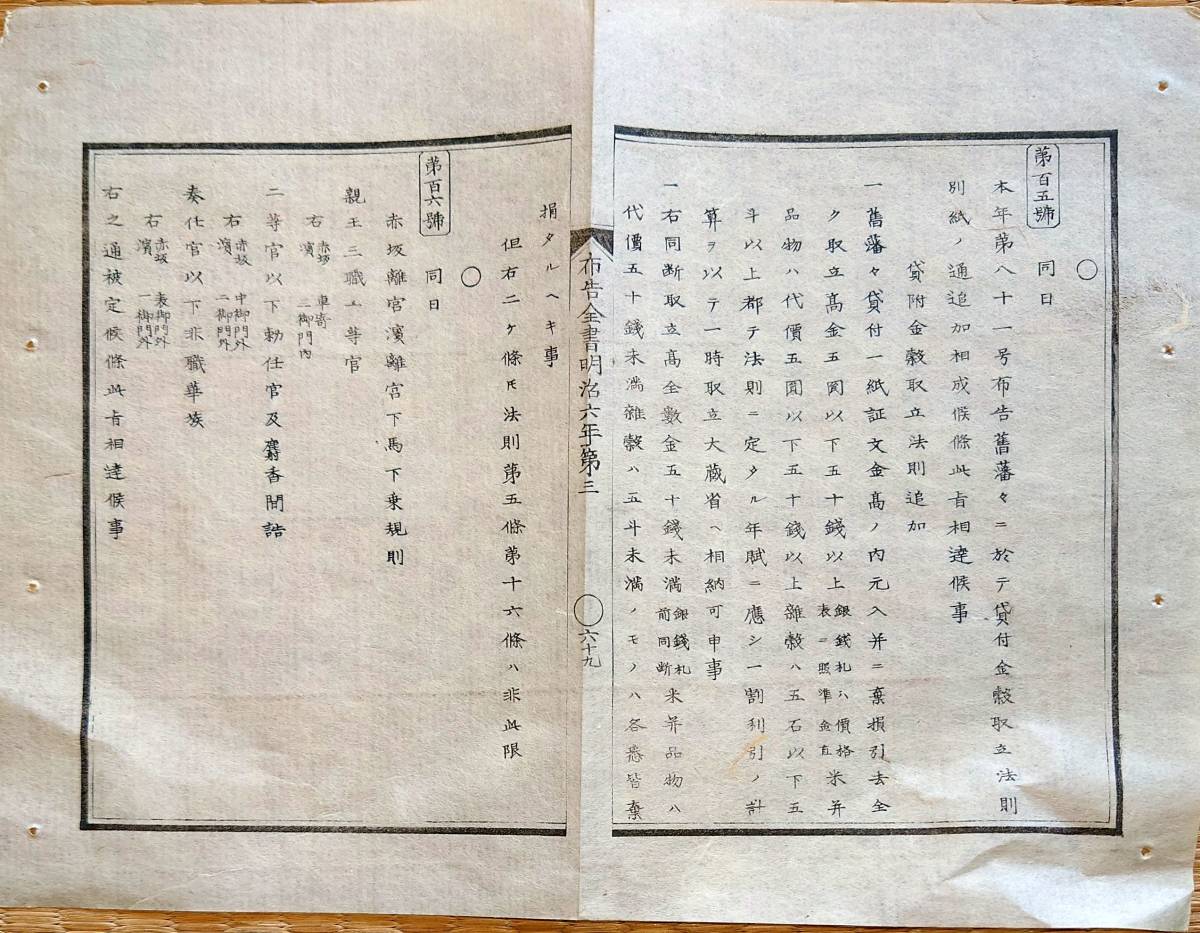 〇
第百五號 同日
本年第八十一号布告舊藩々ニ於テ貸付金穀取立法則
別紙ノ通追加相成候條此旨相達候事
貸附金穀取立法則追加
一舊藩々貸付一紙証文金高ノ内元入并ニ棄損引去全
ク取立高金五圓以下五十錢以上銀錢札ハ價格表ニ照準金直米并
品物ハ代價五圓以下五十錢以上雜穀ハ五石以下五
斗以上都テ法則ニ定タル年賦ニ應シ一割利引ノ計
算ヲ以テ一時取立大藏省ヘ相納可申事
一右同断取立高全數金五十錢未滿銀錢札前同断米并品物ハ
代價五十錢未滿雜穀ハ五斗未滿ノモノハ各悉皆棄
布告全書明治六年第三
〇六十九
捐タルヘキ事
但右二ケ條ㇳモ法則第五條第十六條ハ非此限
〇
第百六號 同日
赤坂離宮濱離宮下馬下乘規則
親王三職一等官
右 赤坂 車寄
濱 二御門内
二等官以下勅任官及麝香間詰
右 赤坂 中御門外
濱 二御門外
奏任官以下非職華族
右 赤坂 表御門外
濱 一御門外
右之通被定候條此旨相達候事